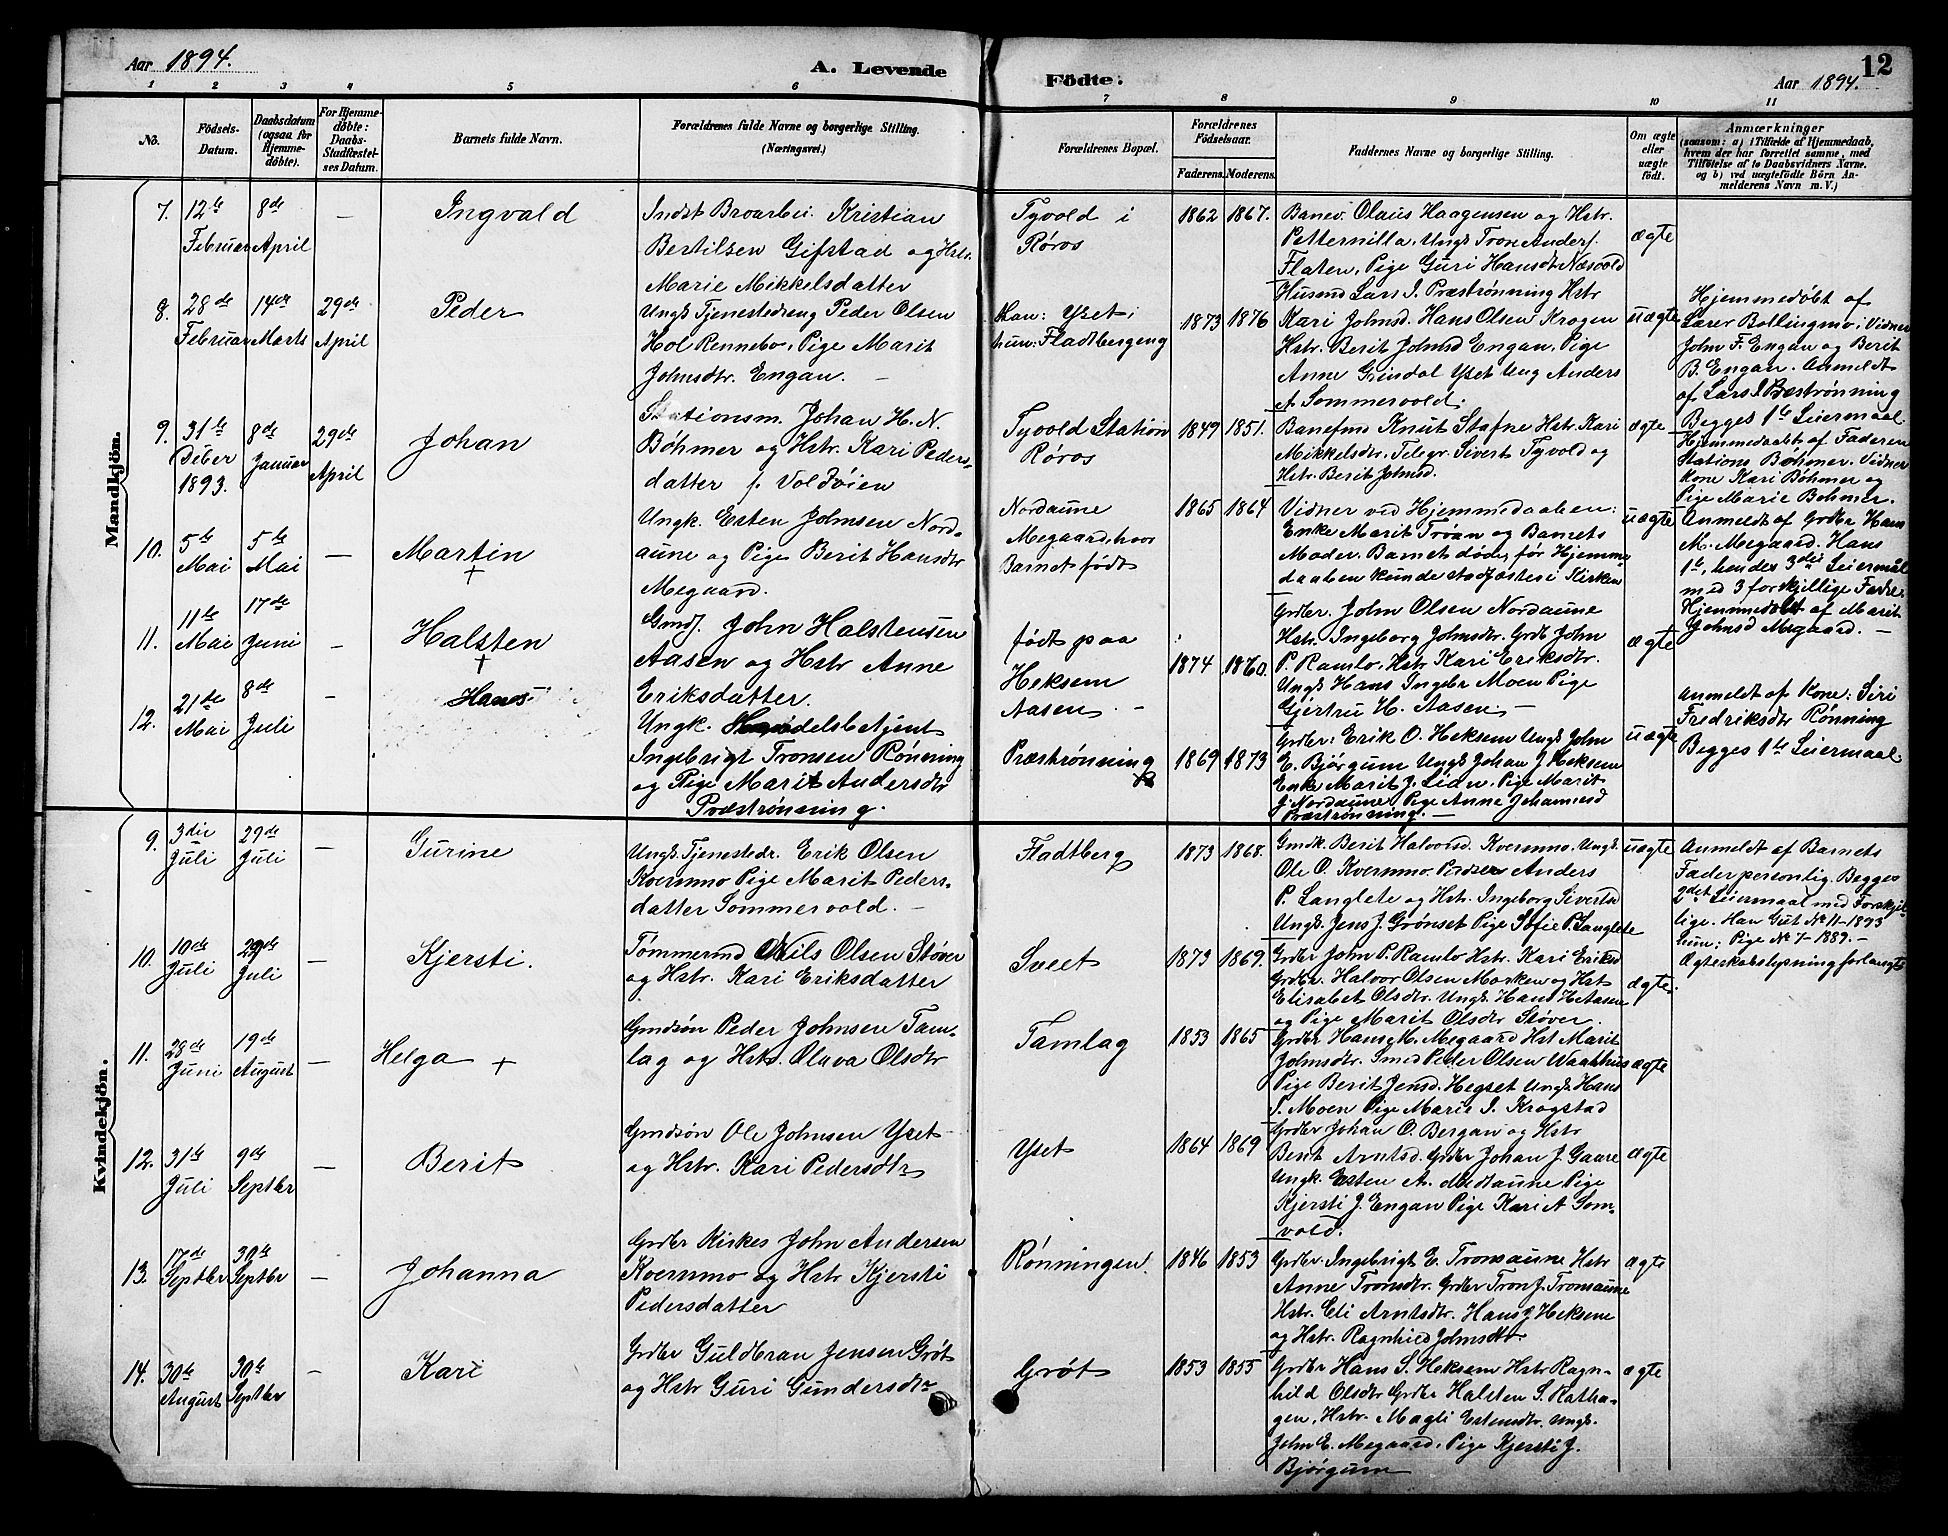 Aar 1894.
A. Levende
Födte.
Aar 1894.
12
1 2 3 4 5 6 7 8 9 10 11
No.
Födsels-
Datum.
Daabsdatum
(ogsaa for
Hjemme-
døbte).
For Hjemme-
døbte:
Daabs-
Stadfæstel-
ses Datum.
Barnets fulde Navn.
Forældrenes fulde Navne og borgerlige Stilling.
(Næringsvei.)
Forældrenes Bopæl.
Forældrenes
Födselsaar.
Faderens. Moderens.
Faddernes Navne og borgerlige Stilling.
Om ægte
eller
uægte
födt.
Anmærkninger
(saasom: a) i Tilfælde af Hjemmedaab,
hvem der har forrettet samme, med
Tilföielse af to Daabsvidners Navne.
og b) ved uægtefödte Börn An-
melderens Navn m. V.)
Mandkjön.
7. 12te Februar
8de April
—
Ingvald
Indst Broarbei. Kristian
Bertilsen Gifstad og Hstr.
Marie Mikkelsdatter
Tyvold i
Røros
1862 1867.
Banev. Olaus Haagensen og Hstr.
Petternilla, Ungk Tron Anders.
Flaten, Pige Guri Hansdt Næsvold
ægte
8. 28de Februar
14de Marts
29de April
Peder
Ungk Tjenestedreng Peder Olsen
Hol Rennebo, Pige Marit
Johnsdtr. Engan. —
Han: Yset i
hun: Fladtbergeng
1873 1876
Husmd Lars I. Præstrønning Hstr
Kari Johnsd. Hans Olsen Krogen
Hstr. Berit Johnsd Engan, Pige
Anne Grindal Yset Ung Anders
A Sommervold.
uægte
Hjemmedøbt af
Lærer Bollingmo, Vidner
John F. Engan og Berit
B. Engan. Anmeldt
af Lars I Præstrønning
Begges 1te Leiermaal
9. 31te Deber 1893.
8de Januar
29de April
Johan
Stationsm. Johan H. N.
Bøhmer og Hstr. Kari Peders-
datter f. Voldvien
Tyvold Station
Røros
1849 1851.
Banefmd Knut Stafne Hstr. Kari
Mikkelsdtr. Telegr. Sivert Tyvold og
Hstr. Berit Johnsd.
ægte
Hjemmedaabt af Faderen
Stations Bøhmer. Vidner
Kone Kari Bøhmer og
Pige Marie Bøhmer.
10. 5te Mai
5te Mai
—
Martin
+
Ungk. Esten Johnsen Nord-
aune og Pige Berit Hansdtr
Megaard.
Nordaune
Megaard, hvor
Barnet født
1865 1864
Vidner ved Hjemmedaaben:
Enke Marit Trøan og Barnets
Moder. Barnet døde, før Hjemme-
daaben kunde stadfæstes i Kirken
uægte
Anmeldt af Grdbr Hans
M. Megaard. Hans
1te, hendes 3die Leiermål
med 3 forskjellige Fædre.
Hjemmedøbt af Marit
Johnsd Megaard. —
11. 11te Mai
17de Juni
—
Halsten
+
Gmdj. John Halstensen
Aasen og Hstr Anne
Eriksdatter.
født paa
Heksem
Aasen. —
1874 1870.
Grdbr. John Olsen Nordaune
Hstr. Ingeborg Johnsdtr. Grdb John
P. Ramlo, Hstr Kari Eriksdtr.
Ungk Hans Ingebr Moen Pige
Gjertru H. Aasen. —
ægte
12. 21de Mai
8de Juli
—
Hans
Ungk. Handelsbetjent
Ingebrigt Tronsen Rønning
og Pige Marit Andersdtr
Præstrønning.
Præstrønning
1869 1873
Grdbr: Erik O. Heksem Ungk John
E. Bjørgum Ungk Johan J Heksem
Enke Marit J. Lien, Pige Marit
J. Nordaune, Pige Anne Johannesd
Præstrønning. —
uægte
Anmeldt af Kone: Siri
Fredriksdtr Rønning
Begges 1te Leiermaal
Kvindekjön.
9. 3die Juli
29de Juli
—
Surine
Ungk Tjenestedr. Erik Olsen
Kvernmo Pige Marit Peders-
datter Sommervold. —
Fladtberg
1873 1868.
Gmdk. Berit Halvorsd. Kvernmo, Ungk.
Ole O. Kvernmo Anders
P. Langlete og Hstr. Ingeborg Sivertsd
Ungk Jens J. Grønset Pige Sofie P. Langlete
uægte
Anmeldt af Barnets
Fader personlig. Begges
2det Leiermaal med Forskjel-
lige. Han Gut No 11-1893
hun: Pige No 7-1889. —
Ægteskabslysning forlangt
10. 10de Juli
29de Juli
—
Kjersti.
Tømmermd Nils Olsen Støver
og Hstr. Kari Eriksdatter
Sveet
1873 1869.
Grdbr John P. Ramlo Hstr. Kari Eriksd
Grdbr. Halvor Olsen Morken og Hst
Elisabet Olsdtr. Ungk. Hans H Aasen
og Pige Marit Olsdtr Støver.
ægte.
11. 28de Juni
19de August
—
Helga +
Gmdsøn Peder Johnsen Tam-
lag og Hstr. Olava Olsdtr
Tamlag
1853 1865
Grdbr Hans M. Megaard Hst Marit
Johnsdtr. Smed Peder Olsen Waabhus
Pige Berit Jensd. Hegset Ungk Hans
I. Moen Pige Marie I. Krogstad
ægte
12. 31te Juli
9de Septbr
—
Berit
Gmdsøn Ole Johnsen Yset
og Hstr. Kari Pedersdtr
Yset
1864 1869
Grdbr Johan O. Bergan og Hstr
Berit Arntsd. Grdbr Johan J. Gaare
Ungk. Esten A. Midtaune Pige
Kjersti J. Engan Pige Kari A Som-
vold.
ægte
13. 17de Septbr
30te Septbr
—
Johanna
Grdbr Kirkes John Andersen
Kvernmo og Hstr Kjersti
Pedersdatter
Rønningen.
1846 1853
Grdbr. Ingebrigt E. Tronsaune Hstr
Anne Tronsdtr. Grdbr Tron J. Tronsaune
Hstr. Eli Arntsdtr. Hans J Heksem
og Hstr. Ragnhild Johnsdtr
ægte
14. 30te August
30te Septbr
—
Kari
Grdbr Guldbran Jensen Grøt
og Hstr Guri Gundersdtr
Grøt
1853 1855
Grdbr Hans S. Heksem Hstr Ragn-
hild Olsdtr Grdbr Halsten S. Ratha-
gen, Hstr. Magli Estensdtr. Ungk.
John E. Megaard, Pige Kjersti J.
Bjørgum
ægte